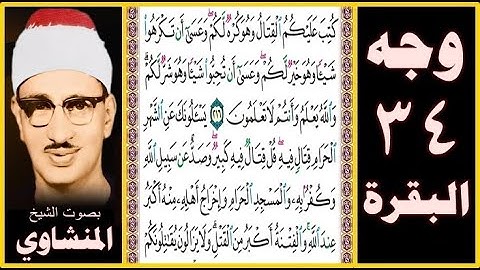 وجه
٣٤
البقرة
كُتِبَ عَلَيْكُمُ الْقِتَالُ وَهُوَ كُرْهٌ لَّكُمْ وَعَسَىٰٓ أَن تَكْرَهُوا۟
شَيْـًٔا وَهُوَ خَيْرٌ لَّكُمْ وَعَسَىٰٓ أَن تُحِبُّوا۟ شَيْـًٔا وَهُوَ شَرٌّ لَّكُمْ
وَاللَّهُ يَعْلَمُ وَأَنتُمْ لَا تَعْلَمُونَ ٢١٦ يَسْـَٔلُونَكَ عَنِ الشَّهْرِ
الْحَرَامِ قِتَالٍ فِيهِ قُلْ قِتَالٌ فِيهِ كَبِيرٌ وَصَدٌّ عَن سَبِيلِ اللَّهِ
وَكُفْرٌۢ بِهِۦ وَالْمَسْجِدِ الْحَرَامِ وَإِخْرَاجُ أَهْلِهِۦ مِنْهُ أَكْبَرُ
عِندَ اللَّهِ وَالْفِتْنَةُ أَكْبَرُ مِنَ الْقَتْلِ وَلَا يَزَالُونَ يُقَـٰتِلُونَكُمْ
بصوت الشيخ
المنشاوي